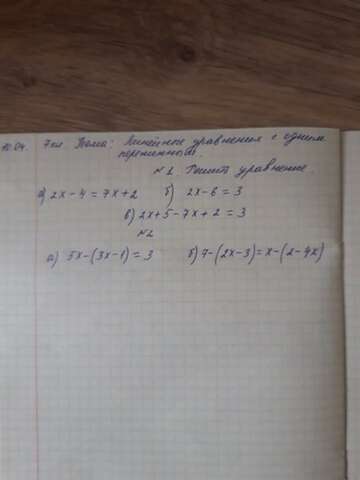 10.04. 7кл Тема: Линейное уравнения с одной
переменной.
№1. Решит уравнение.
а) 2x-4=7x+2 б) 2x-6=3
в) 2x+5-7x+2=3
№2
а) 5x-(3x-1)=3 б) 7-(2x-3)=x-(2-4x)